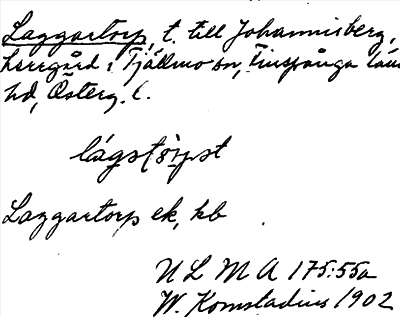 Laggartorp, t. till Johannisberg,
herrgård i Tjällmo sn, Finspånga läns
hd, Österg. l.
Laggartorp ek, hb
U L M A 175:55a
W. Komstadius 1902